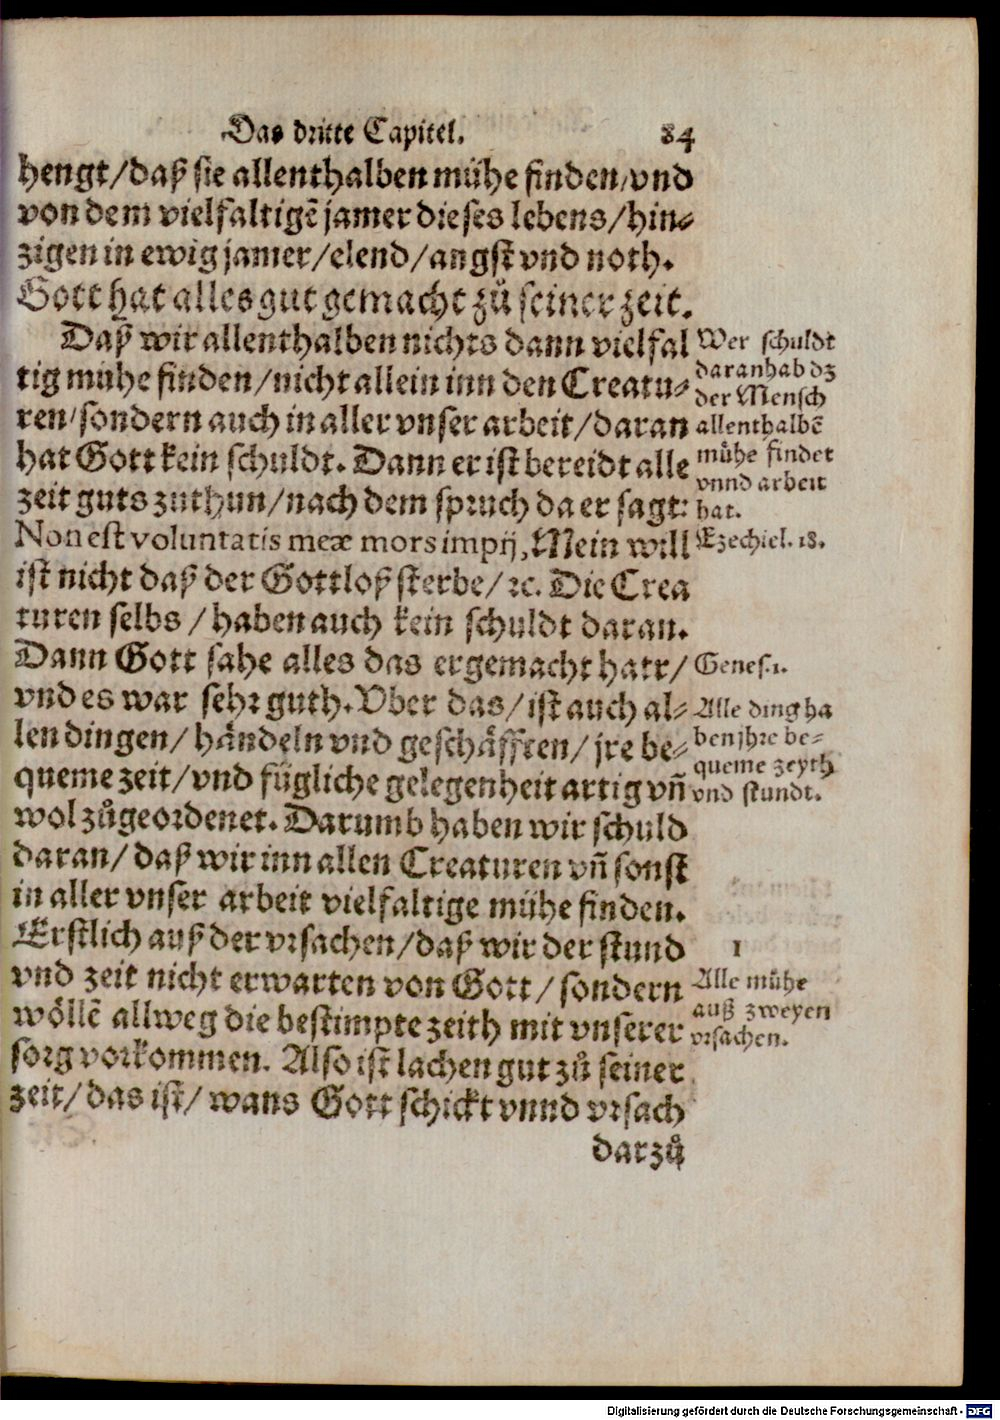 Das dritte Capitel. 84
hengt/daß sie allenthalben mühe finden/vnd
von dem vielfaltigẽ jamer dieses lebens/hin-
zigen in ewig jamer/elend/angst vnd noth.
Gott hat alles gut gemacht zů seiner zeit.
Daß wir allenthalben nichts dann vielfal
tig mühe finden/nicht allein inn den Creatu-
ren/sondern auch in aller vnser arbeit/daran
hat Gott kein schuldt. Dann er ist bereidt alle
zeit guts zuthun/nach dem spruch da er sagt:
Non est voluntatis meæ mors impij, Mein will
ist nicht daß der Gottloß sterbe/ꝛc. Die Crea
turen selbs/haben auch kein schuldt daran.
Dann Gott sahe alles das er gemacht hatt/
vnd es war sehr guth. Vber das/ist auch al-
len dingen/händeln vnd geschäfften/jre be-
queme zeit/vnd fügliche gelegenheit artig vñ
wol zůgeordenet. Darumb haben wir schuld
daran/daß wir inn allen Creaturen vñ sonst
in aller vnser arbeit vielfaltige mühe finden.
Erstlich auß der vrsachen/daß wir der stund
vnd zeit nicht erwarten von Gott/sondern
wöllẽ allweg die bestimpte zeith mit vnserer
sorg vorkommen. Also ist lachen gut zů seiner
zeit/das ist/wans Gott schickt vnnd vrsach
darzů
Wer schuldt
daran hab dz
der Mensch
allenthalbẽ
mühe findet
vnnd arbeit
hat.
Ezechiel. 18.
Genes. 1.
Alle ding ha
ben jhre be-
queme zeyth
vnd stundt.
1
Alle mühe
auß zweyen
vrsachen.
Digitalisierung gefördert durch die Deutsche Forschungsgemeinschaft - DFG